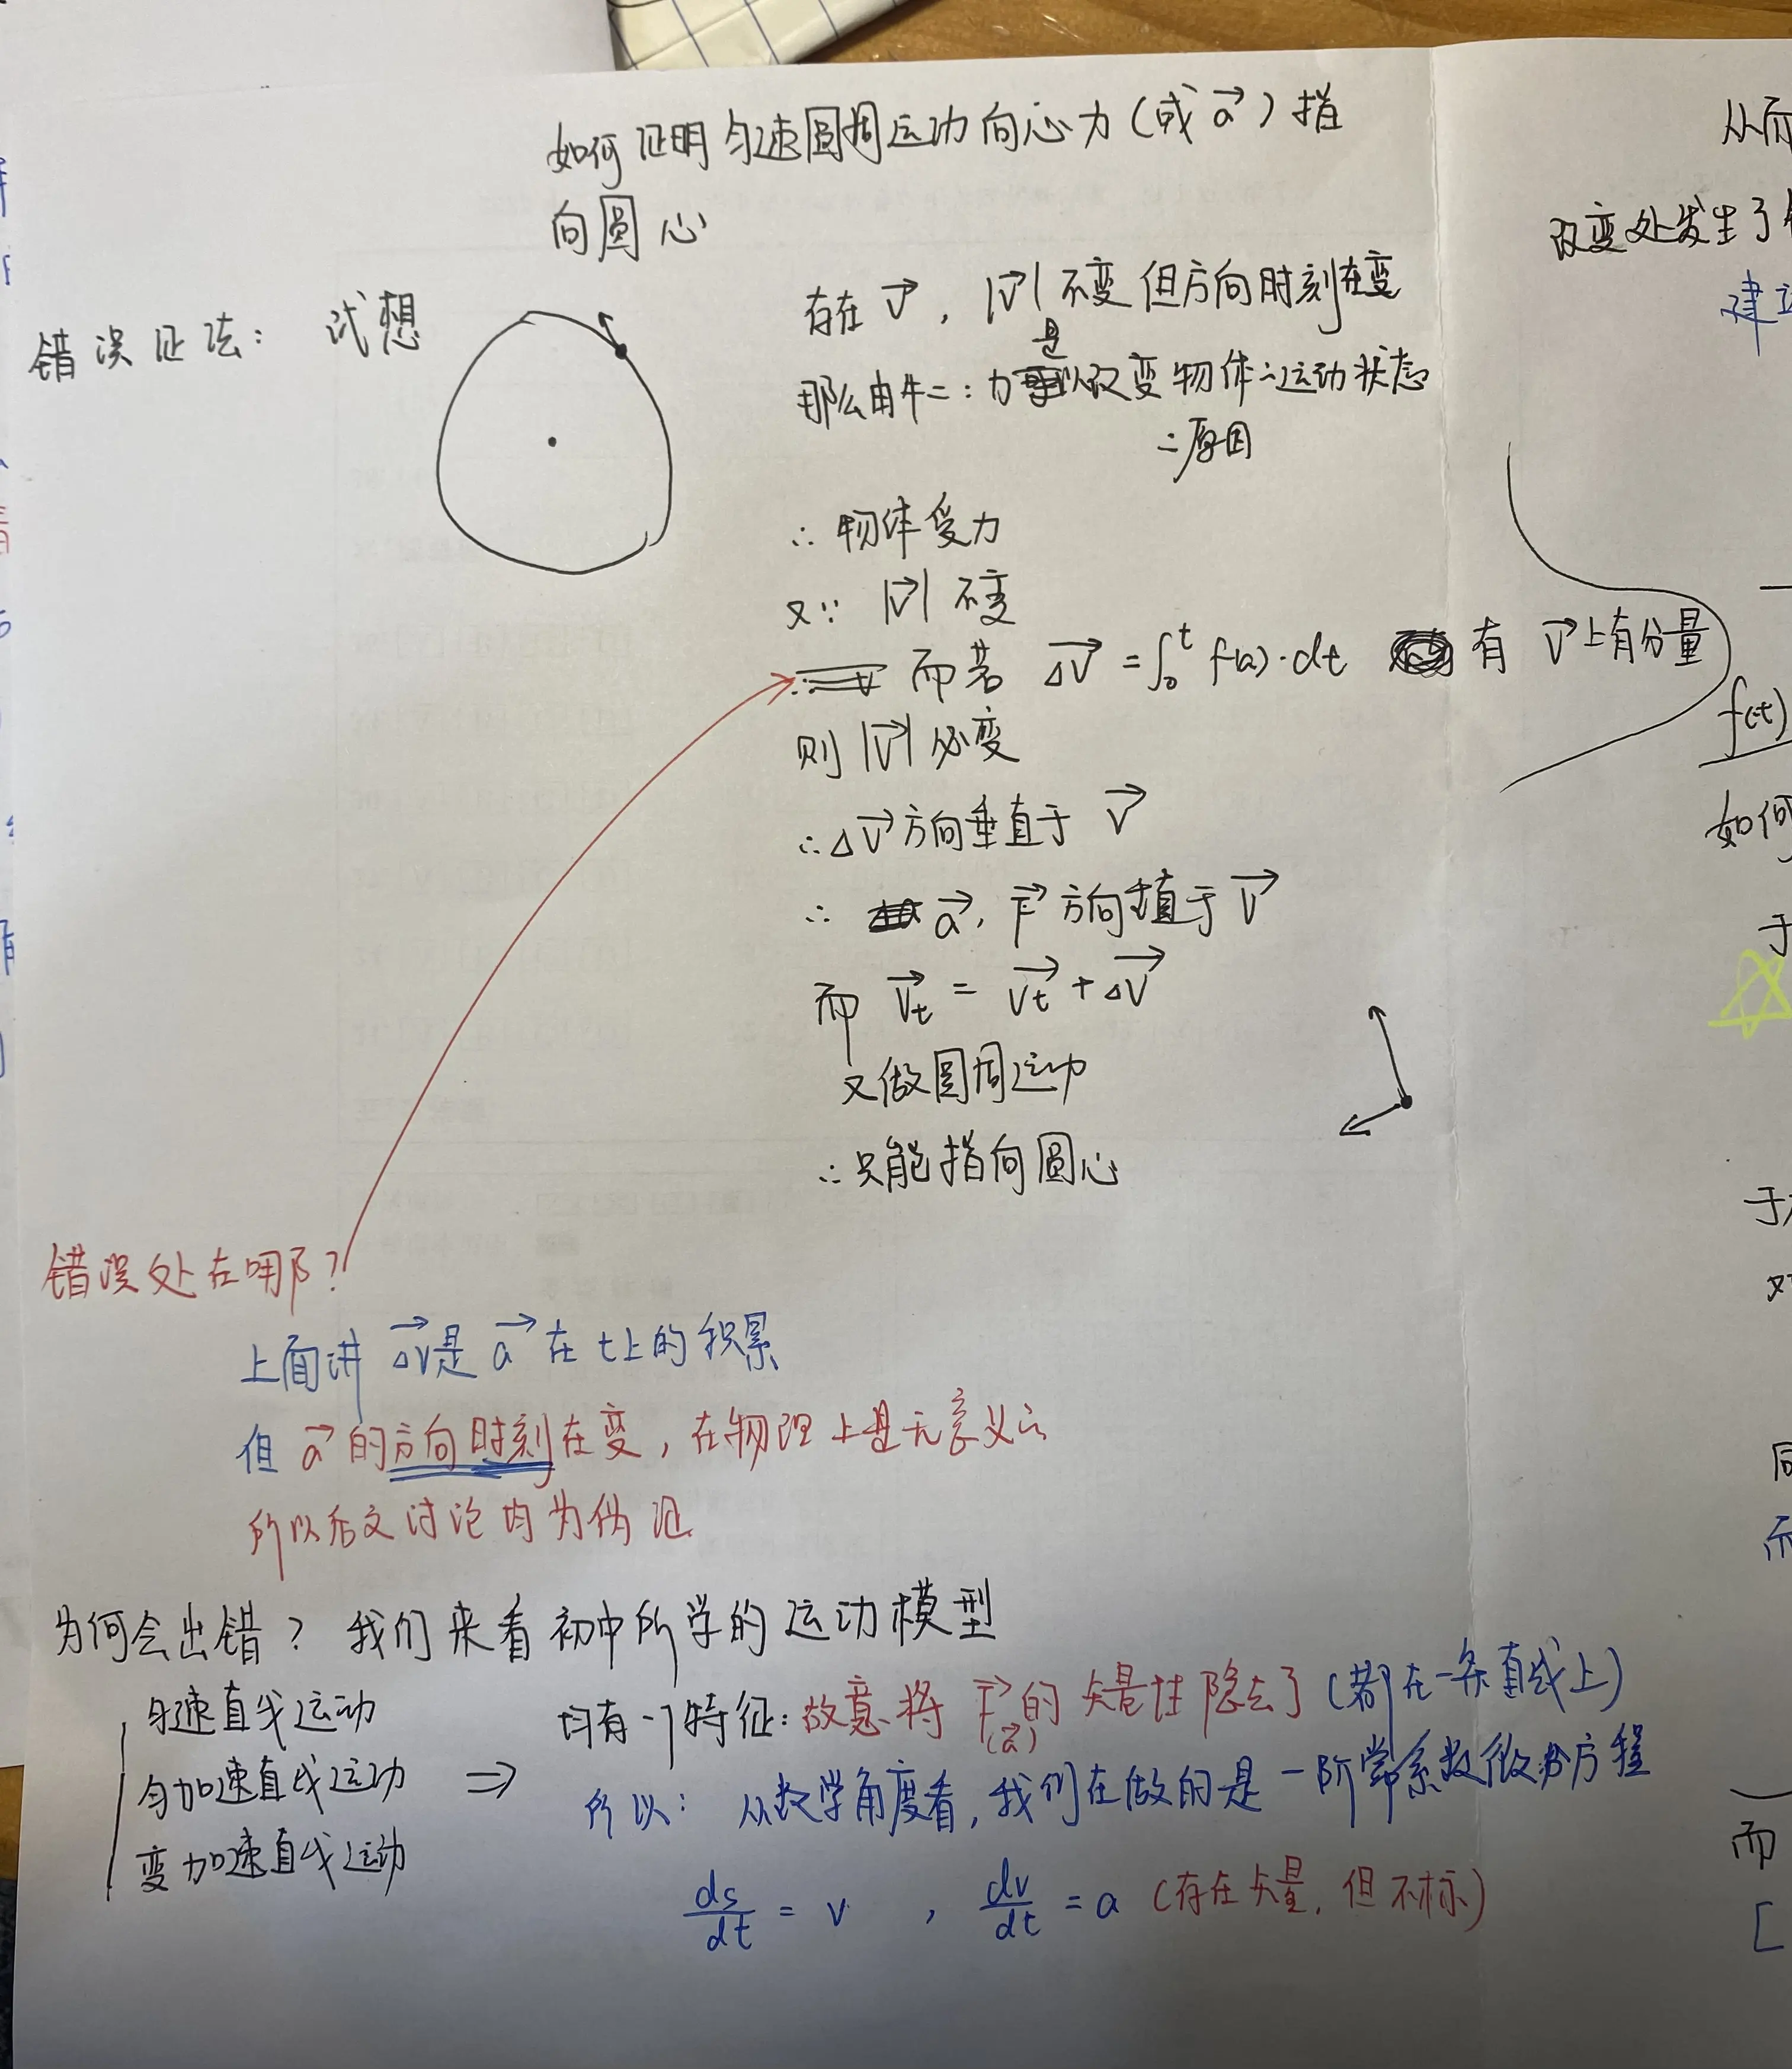 如何证明匀速圆周运动向心力(或a⃗)指
向圆心
错误证法: 试想
存在 v⃗, |v⃗| 不变 但方向时刻在变
那么由牛二: 力是改变物体的运动状态
的原因
∴ 物体受力
又∵ |v⃗| 不变
而若 Δv⃗ = ∫₀ᵗ f(a)·dt 有 v⃗上有分量
则 |v⃗| 必变
∴ Δv⃗ 方向垂直于 v⃗
∴ a⃗, F⃗ 方向垂直于 v⃗
而 v⃗t = v⃗t + Δv⃗
又做圆周运动
∴ 只能指向圆心
错误处在哪?
上面讲 Δv⃗是 a⃗ 在 t上的积累
但 a⃗ 的方向时刻在变, 在物理上是无意义的
所以后文讨论均为伪证
为何会出错? 我们来看初中所学的运动模型
匀速直线运动
匀加速直线运动
变加速直线运动
⇒
均有一个特征: 故意将 F⃗ 的矢量性隐去了 (都在一条直线上)
(a⃗)
所以: 从数学角度看, 我们在做的是一阶常系数微分方程
ds/dt = v , dv/dt = a (存在矢量, 但不标)
从而
改变处发生了
建
f(t)
如何
于
于
对
同
而
[